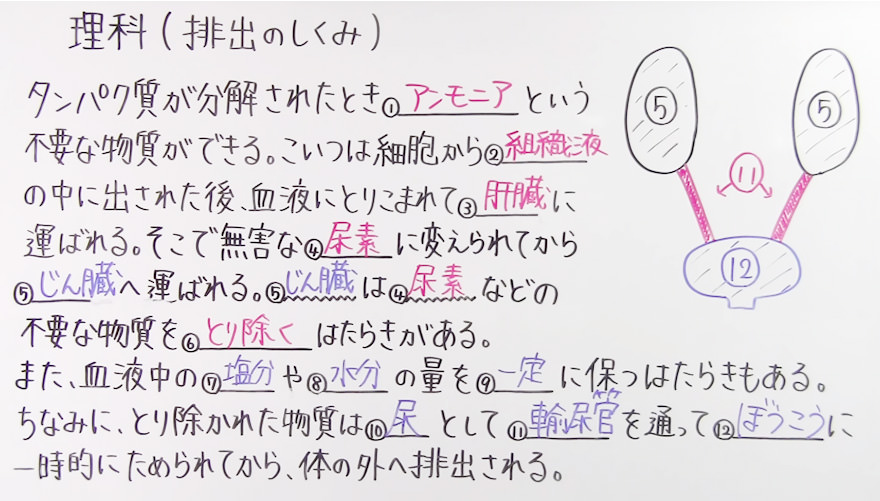 理科(排出のしくみ)
タンパク質が分解されたとき①アンモニアという
不要な物質ができる。こいつは細胞から②組織液
の中に出された後、血液にとりこまれて③肝臓に
運ばれる。そこで無害な④尿素に変えられてから
⑤じん臓へ運ばれる。⑤じん臓は④尿素などの
不要な物質を⑥とり除くはたらきがある。
また、血液中の⑦塩分や⑧水分の量を⑨一定に保つはたらきもある。
ちなみに、とり除かれた物質は⑩尿として⑪輸尿管を通って⑫ぼうこうに
一時的にためられてから、体の外へ排出される。
⑤
⑤
⑪
⑫